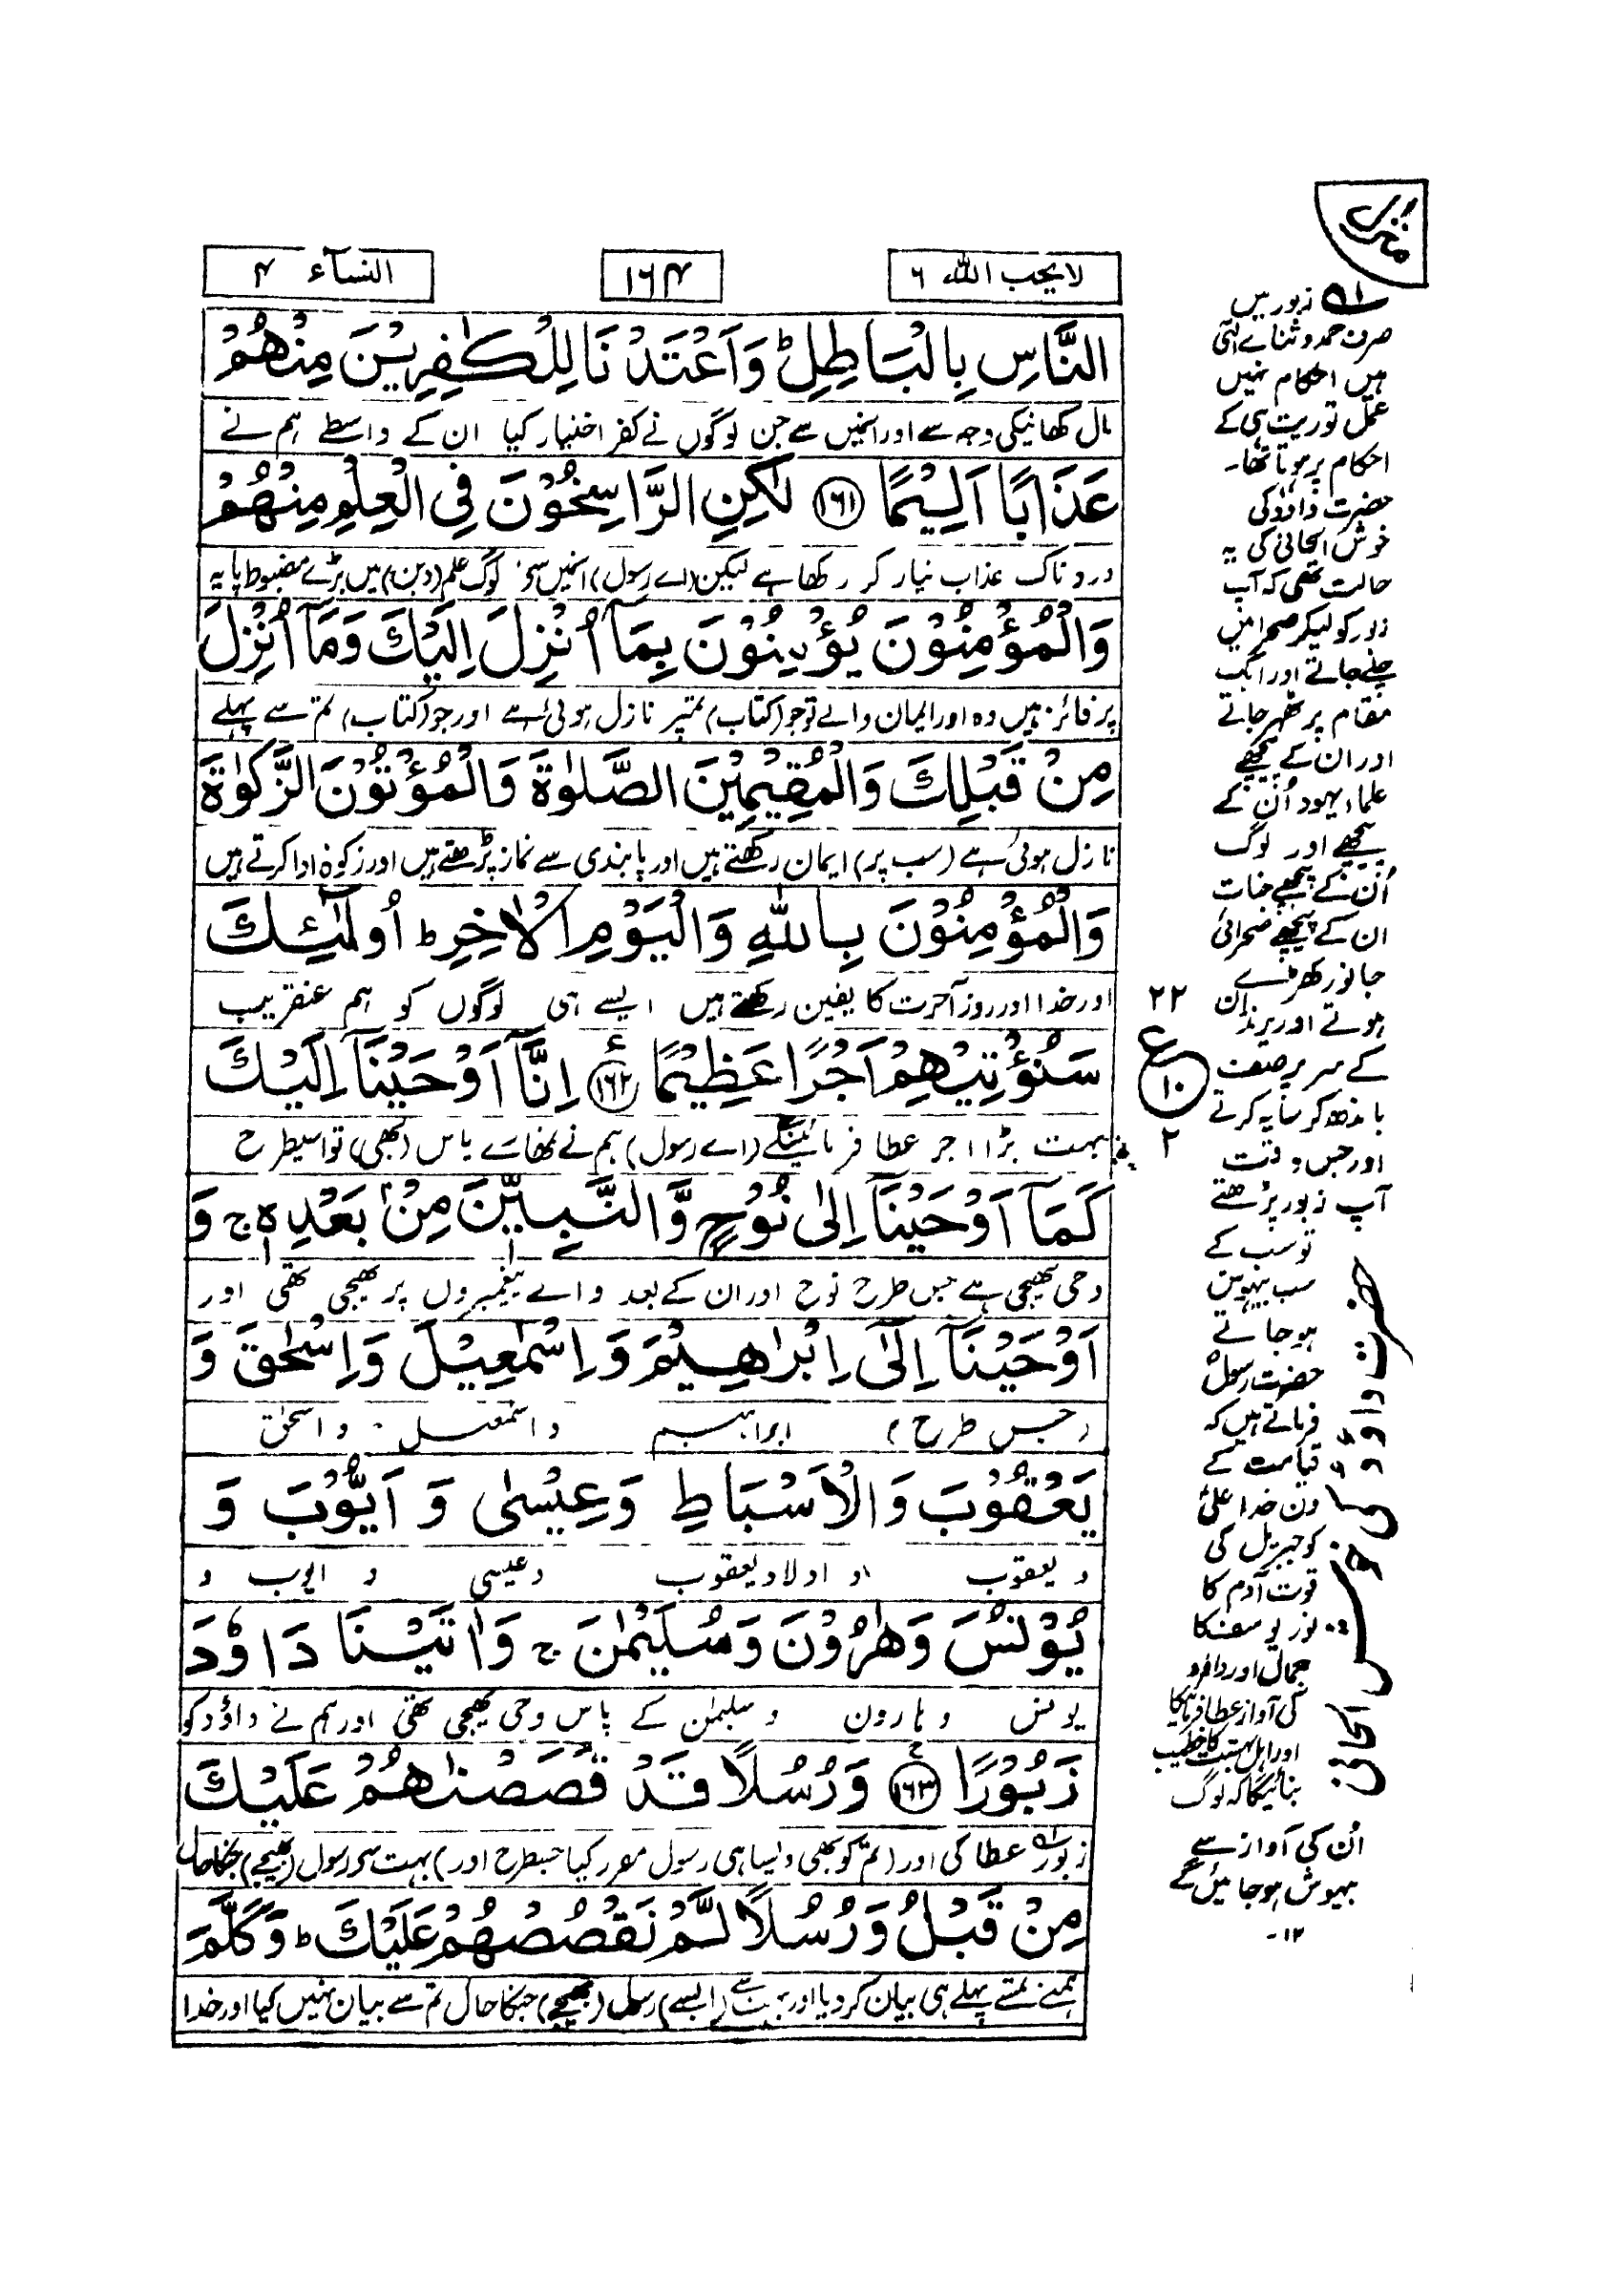 منزل
لا یحب اللہ ۶
۱۶۴
النسآء ۴
النَّاسِ بِالْبَاطِلِ ؕ وَاَعْتَدْنَا لِلْكٰفِرِیْنَ مِنْهُمْ
مال کھانیکی وجہ سے اور انمیں سے جن لوگوں نے کفر اختیار کیا ان کے واسطے ہم نے
عَذَابًا اَلِیْمًا ﴿۱۶۱﴾ لٰكِنِ الرَّاسِخُوْنَ فِی الْعِلْمِ مِنْهُمْ
دردناک عذاب تیار کر رکھا ہے لیکن (اے رسول) انمیں سے جو لوگ علم (دین) میں بڑے مضبوط پایہ
وَالْمُؤْمِنُوْنَ یُؤْمِنُوْنَ بِمَاۤ اُنْزِلَ اِلَیْكَ وَمَاۤ اُنْزِلَ
پر فائز ہیں وہ اور ایمان والے تو جو (کتاب) تمپر نازل ہوئی ہے اور جو (کتاب) تم سے پہلے
مِنْ قَبْلِكَ وَالْمُقِیْمِیْنَ الصَّلٰوةَ وَالْمُؤْتُوْنَ الزَّكٰوةَ
نازل ہوئی ہے (سب پر) ایمان رکھتے ہیں اور پابندی سے نماز پڑھتے ہیں اور زکوٰۃ ادا کرتے ہیں
وَالْمُؤْمِنُوْنَ بِاللّٰهِ وَالْیَوْمِ الْاٰخِرِ ؕ اُولٰٓئِكَ
اور خدا اور روز آخرت کا یقین رکھتے ہیں ایسے ہی لوگوں کو ہم عنقریب
سَنُؤْتِیْهِمْ اَجْرًا عَظِیْمًا ﴿۱۶۲﴾ ع اِنَّاۤ اَوْحَیْنَاۤ اِلَیْكَ
بہت بڑا اجر عطا فرمائینگے (اے رسول) ہم نے تمھارے پاس (بھی) تو اسیطرح
كَمَاۤ اَوْحَیْنَاۤ اِلٰی نُوْحٍ وَّالنَّبِیّٖنَ مِنْۢ بَعْدِهٖ ۚ وَ
وحی بھیجی ہے جس طرح نوح اور ان کے بعد والے پیغمبروں پر بھیجی تھی اور
اَوْحَیْنَاۤ اِلٰۤی اِبْرٰهِیْمَ وَاِسْمٰعِیْلَ وَاِسْحٰقَ وَ
(جس طرح) ابراہیم و اسمٰعیل و اسحٰق
یَعْقُوْبَ وَالْاَسْبَاطِ وَعِیْسٰی وَ اَیُّوْبَ وَ
و یعقوب و اولاد یعقوب و عیسیٰ و ایوب و
یُوْنُسَ وَهٰرُوْنَ وَسُلَیْمٰنَ ۚ وَاٰتَیْنَا دَاوٗدَ
یونس و ہارون و سلیمٰن کے پاس وحی بھیجی تھی اور ہم نے داؤد کو
زَبُوْرًا ﴿۱۶۳﴾ وَرُسُلًا قَدْ قَصَصْنٰهُمْ عَلَیْكَ
زبور عطا کی اور (تم کو بھی ویسا ہی رسول مقرر کیا جسطرح اور) بہت سے رسول (بھیجے) جنکا حال
مِنْ قَبْلُ وَرُسُلًا لَّمْ نَقْصُصْهُمْ عَلَیْكَ ؕ وَكَلَّمَ
ہمنے تمسے پہلے ہی بیان کر دیا اور بہت سے (ایسے) رسول (بھیجے) جنکا حال تم سے بیان نہیں کیا اور خدا
۲۲
ع
۱۰
۲
۱ زبور میں
صرف حمد و ثنائے الٰہی
ہیں احکام نہیں
عمل توریت ہی کے
احکام پر ہوتا تھا۔
حضرت داؤد کی
خوش الحانی کی یہ
حالت تھی کہ آپ
زبور کو لیکر صحرا میں
چلے جاتے اور ایک
مقام پر ٹھہر جاتے
اور ان کے پیچھے
علماء یہود اُن کے
پیچھے اور لوگ
اُن کے پیچھے جنات
ان کے پیچھے صحرائی
جانور کھڑے
ہوتے اور پرند ان
کے سر پر صف
باندھ کر سایہ کرتے
اور جس وقت
آپ زبور پڑھتے
تو سب کے
سب بیہوش
ہو جاتے
حضرت رسولؐ
فرماتے ہیں کہ
قیامت کے
دن خدا علیؑ
کو جبریل کی
قوت آدم کا
نور یوسف کا
جمال اور داؤد
کی آواز عطا فرمائیگا
اور اہل بہشت کا خطیب
بنائیگا کہ لوگ
اُن کی آواز سے
بیہوش ہو جائیں گے
۱۲۔
حضرت داؤد کی خوش الحانی